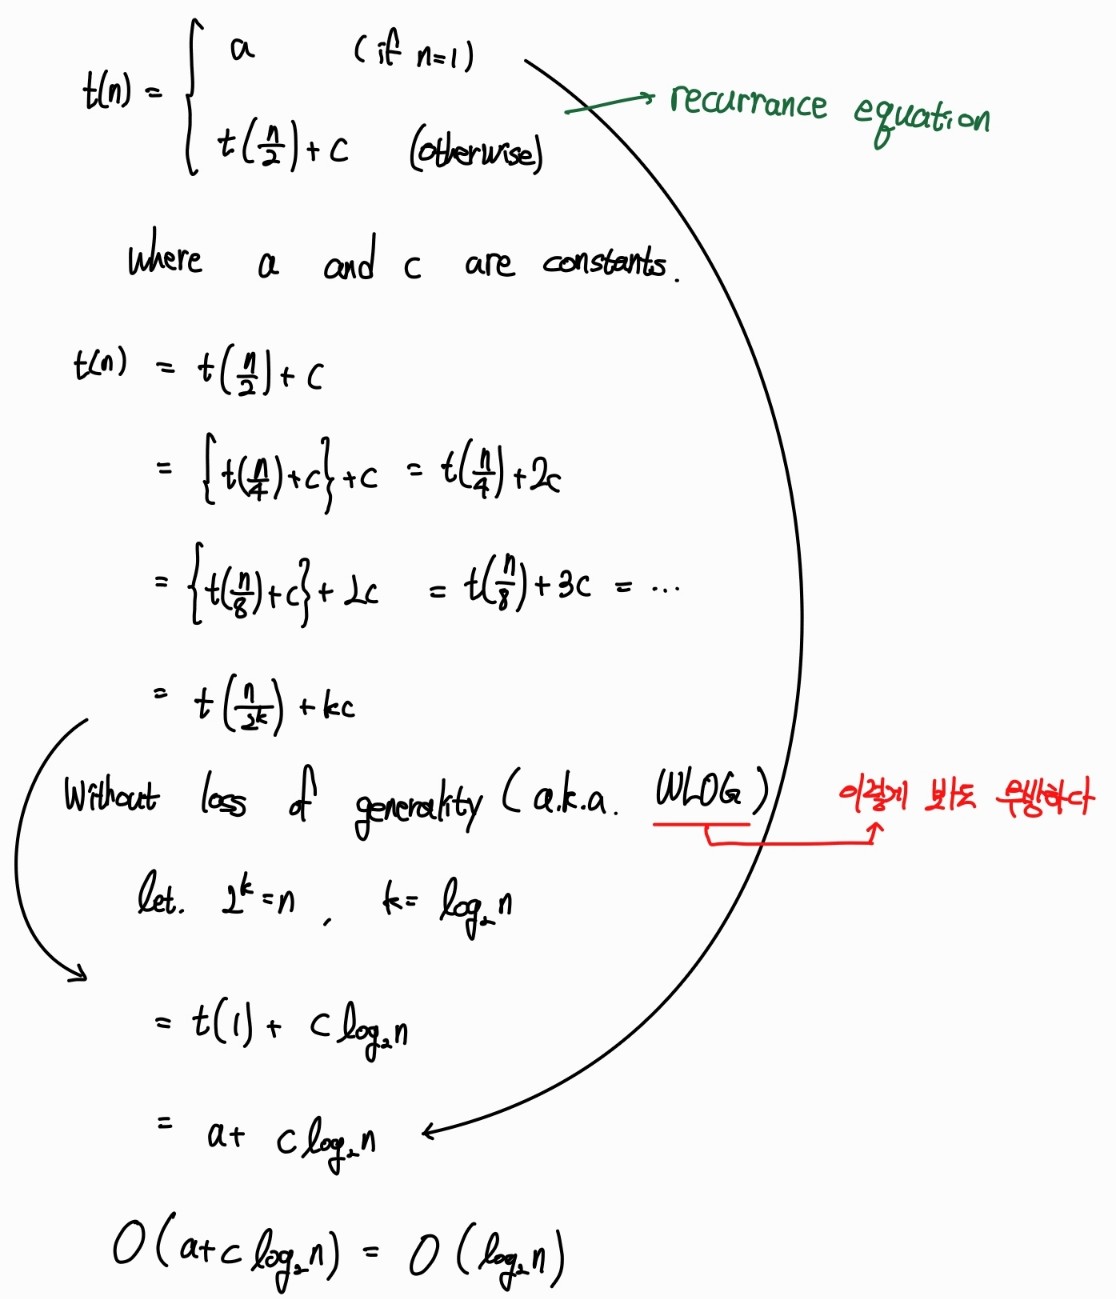 t(n) = { a (if n=1)
t(n/2) + c (otherwise)
→ recurrance equation
where a and c are constants.
t(n) = t(n/2) + c
= {t(n/4) + c} + c = t(n/4) + 2c
= {t(n/8) + c} + 2c = t(n/8) + 3c = ...
= t(n/2^k) + kc
Without loss of generality (a.k.a. WLOG)
이렇게 봐도 무방하다
let. 2^k = n , k = log₂n
= t(1) + c log₂n
= a + c log₂n
O(a + c log₂n) = O(log₂n)